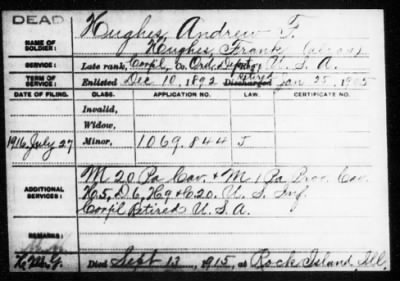 DEAD
Hughes, Andrew F.
NAME OF SOLDIER:
Hughes, Frank (alias)
SERVICE:
Late rank, Corp'l, Co. Ord. Dept, U.S.A.
TERM OF SERVICE:
Enlisted Dec 10, 1892 Discharged retired Jan 25, 1905
DATE OF FILING. CLASS. APPLICATION NO. LAW. CERTIFICATE NO.
Invalid,
Widow,
1916, July 27 Minor, 1069.844 5
ADDITIONAL SERVICES:
M 20 Pa Cav. & M 1 Pa Prov. Cav.
K 5, D 6, H 9 & C 20. U. S. Inf.
Corp'l Retired U.S.A.
REMARKS:
Died Sept 13, 1915, at Rock Island, Ill.